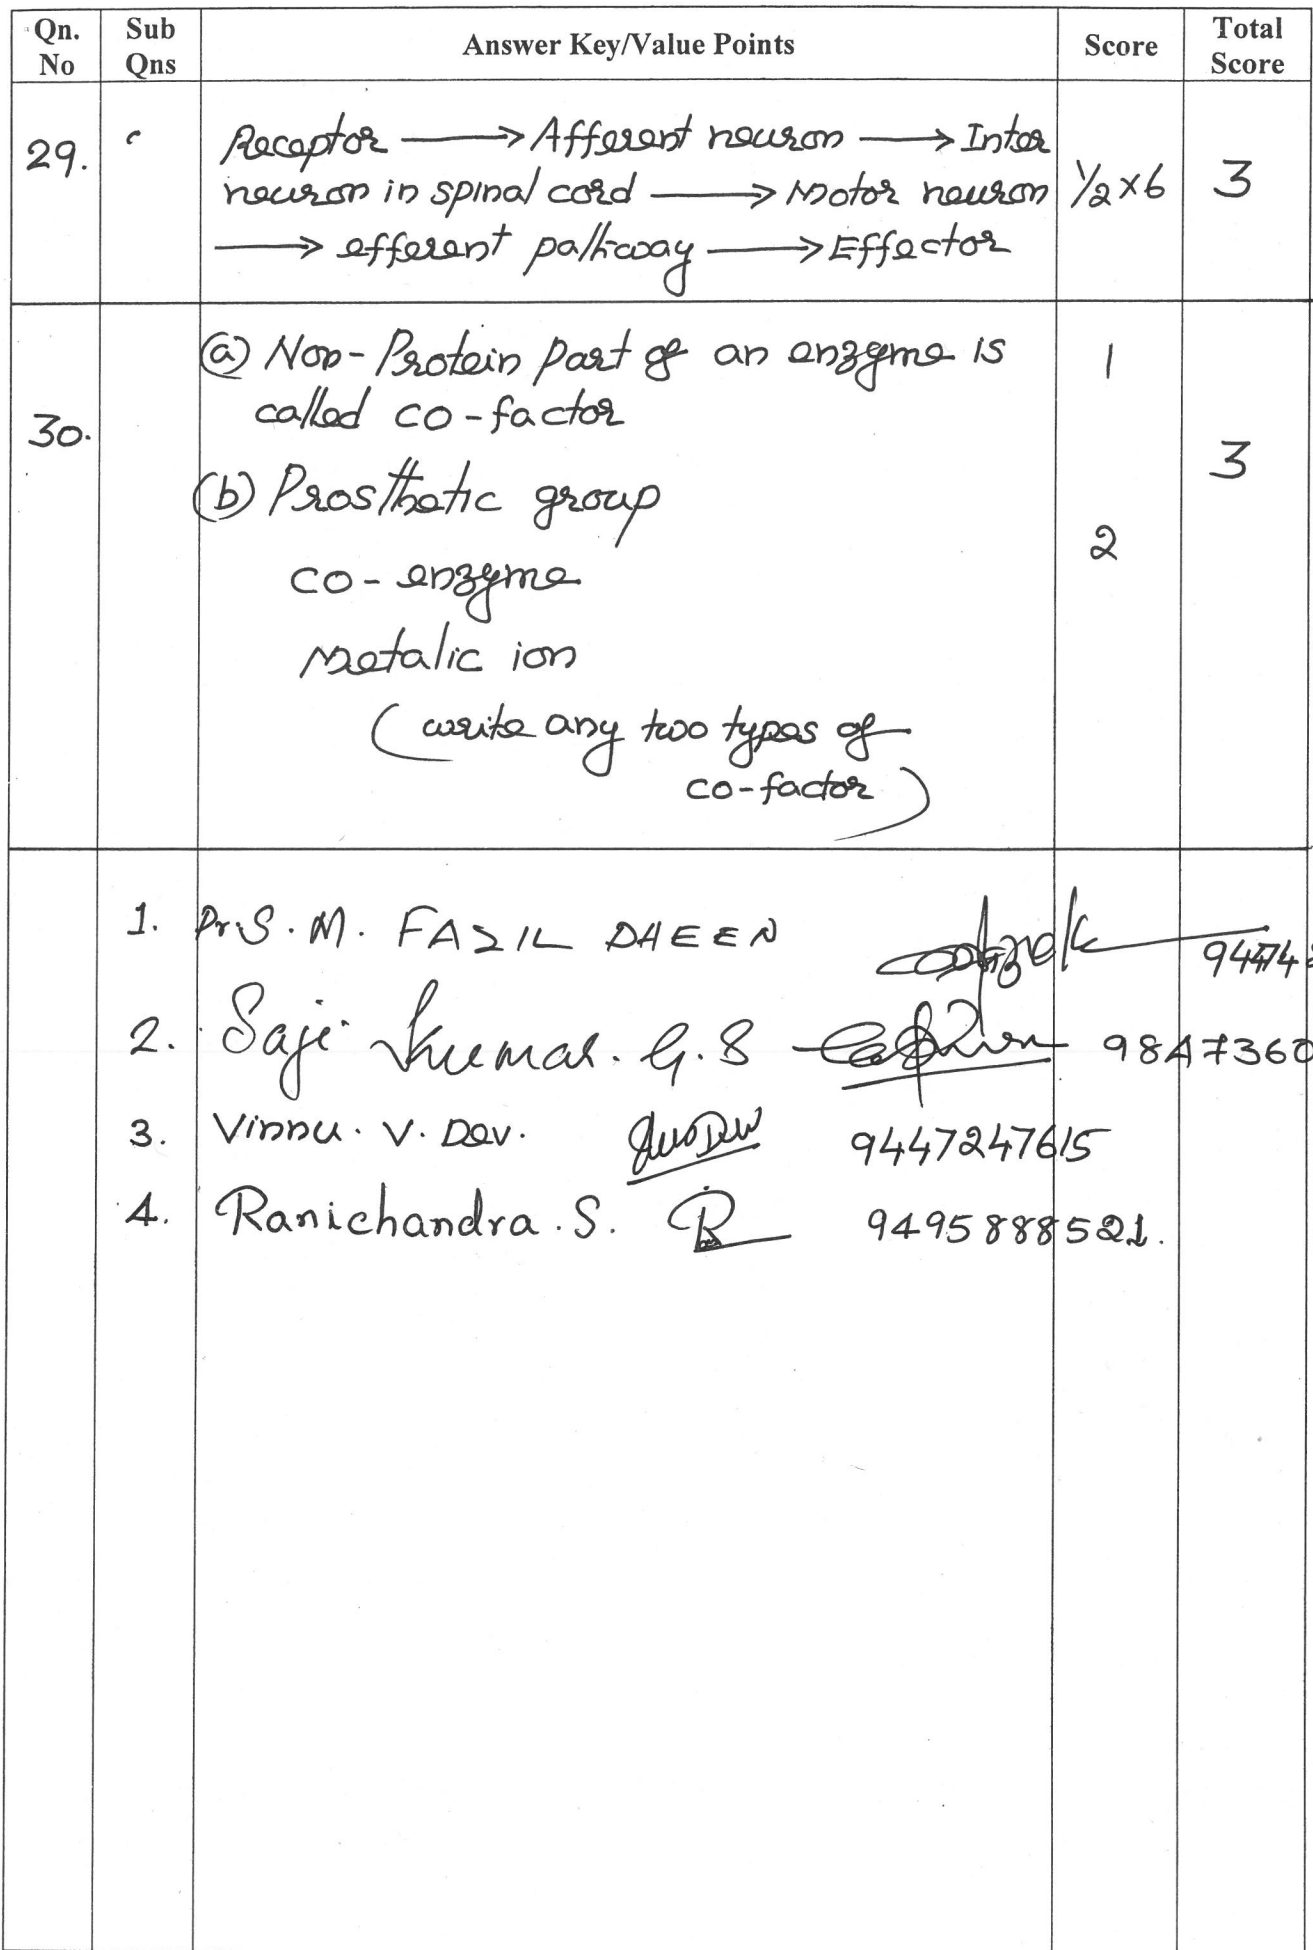 Qn. No Sub Qns Answer Key/Value Points Score Total Score
29. Receptor → Afferent neuron → Inter
neuron in spinal cord → Motor neuron 1/2 x 6 3
→ efferent pathway → Effector
(a) Non-Protein part of an enzyme is 1
called co-factor
30. 3
(b) Prosthetic group
2
co-enzyme
Metalic ion
(write any two types of
co-factor)
1. Dr. S. M. FAZIL DHEEN 94474
2. Saji Kumar. G. S 9847360
3. Vinnu. V. Dev. 9447247615
4. Ranichandra. S. 9495888521.